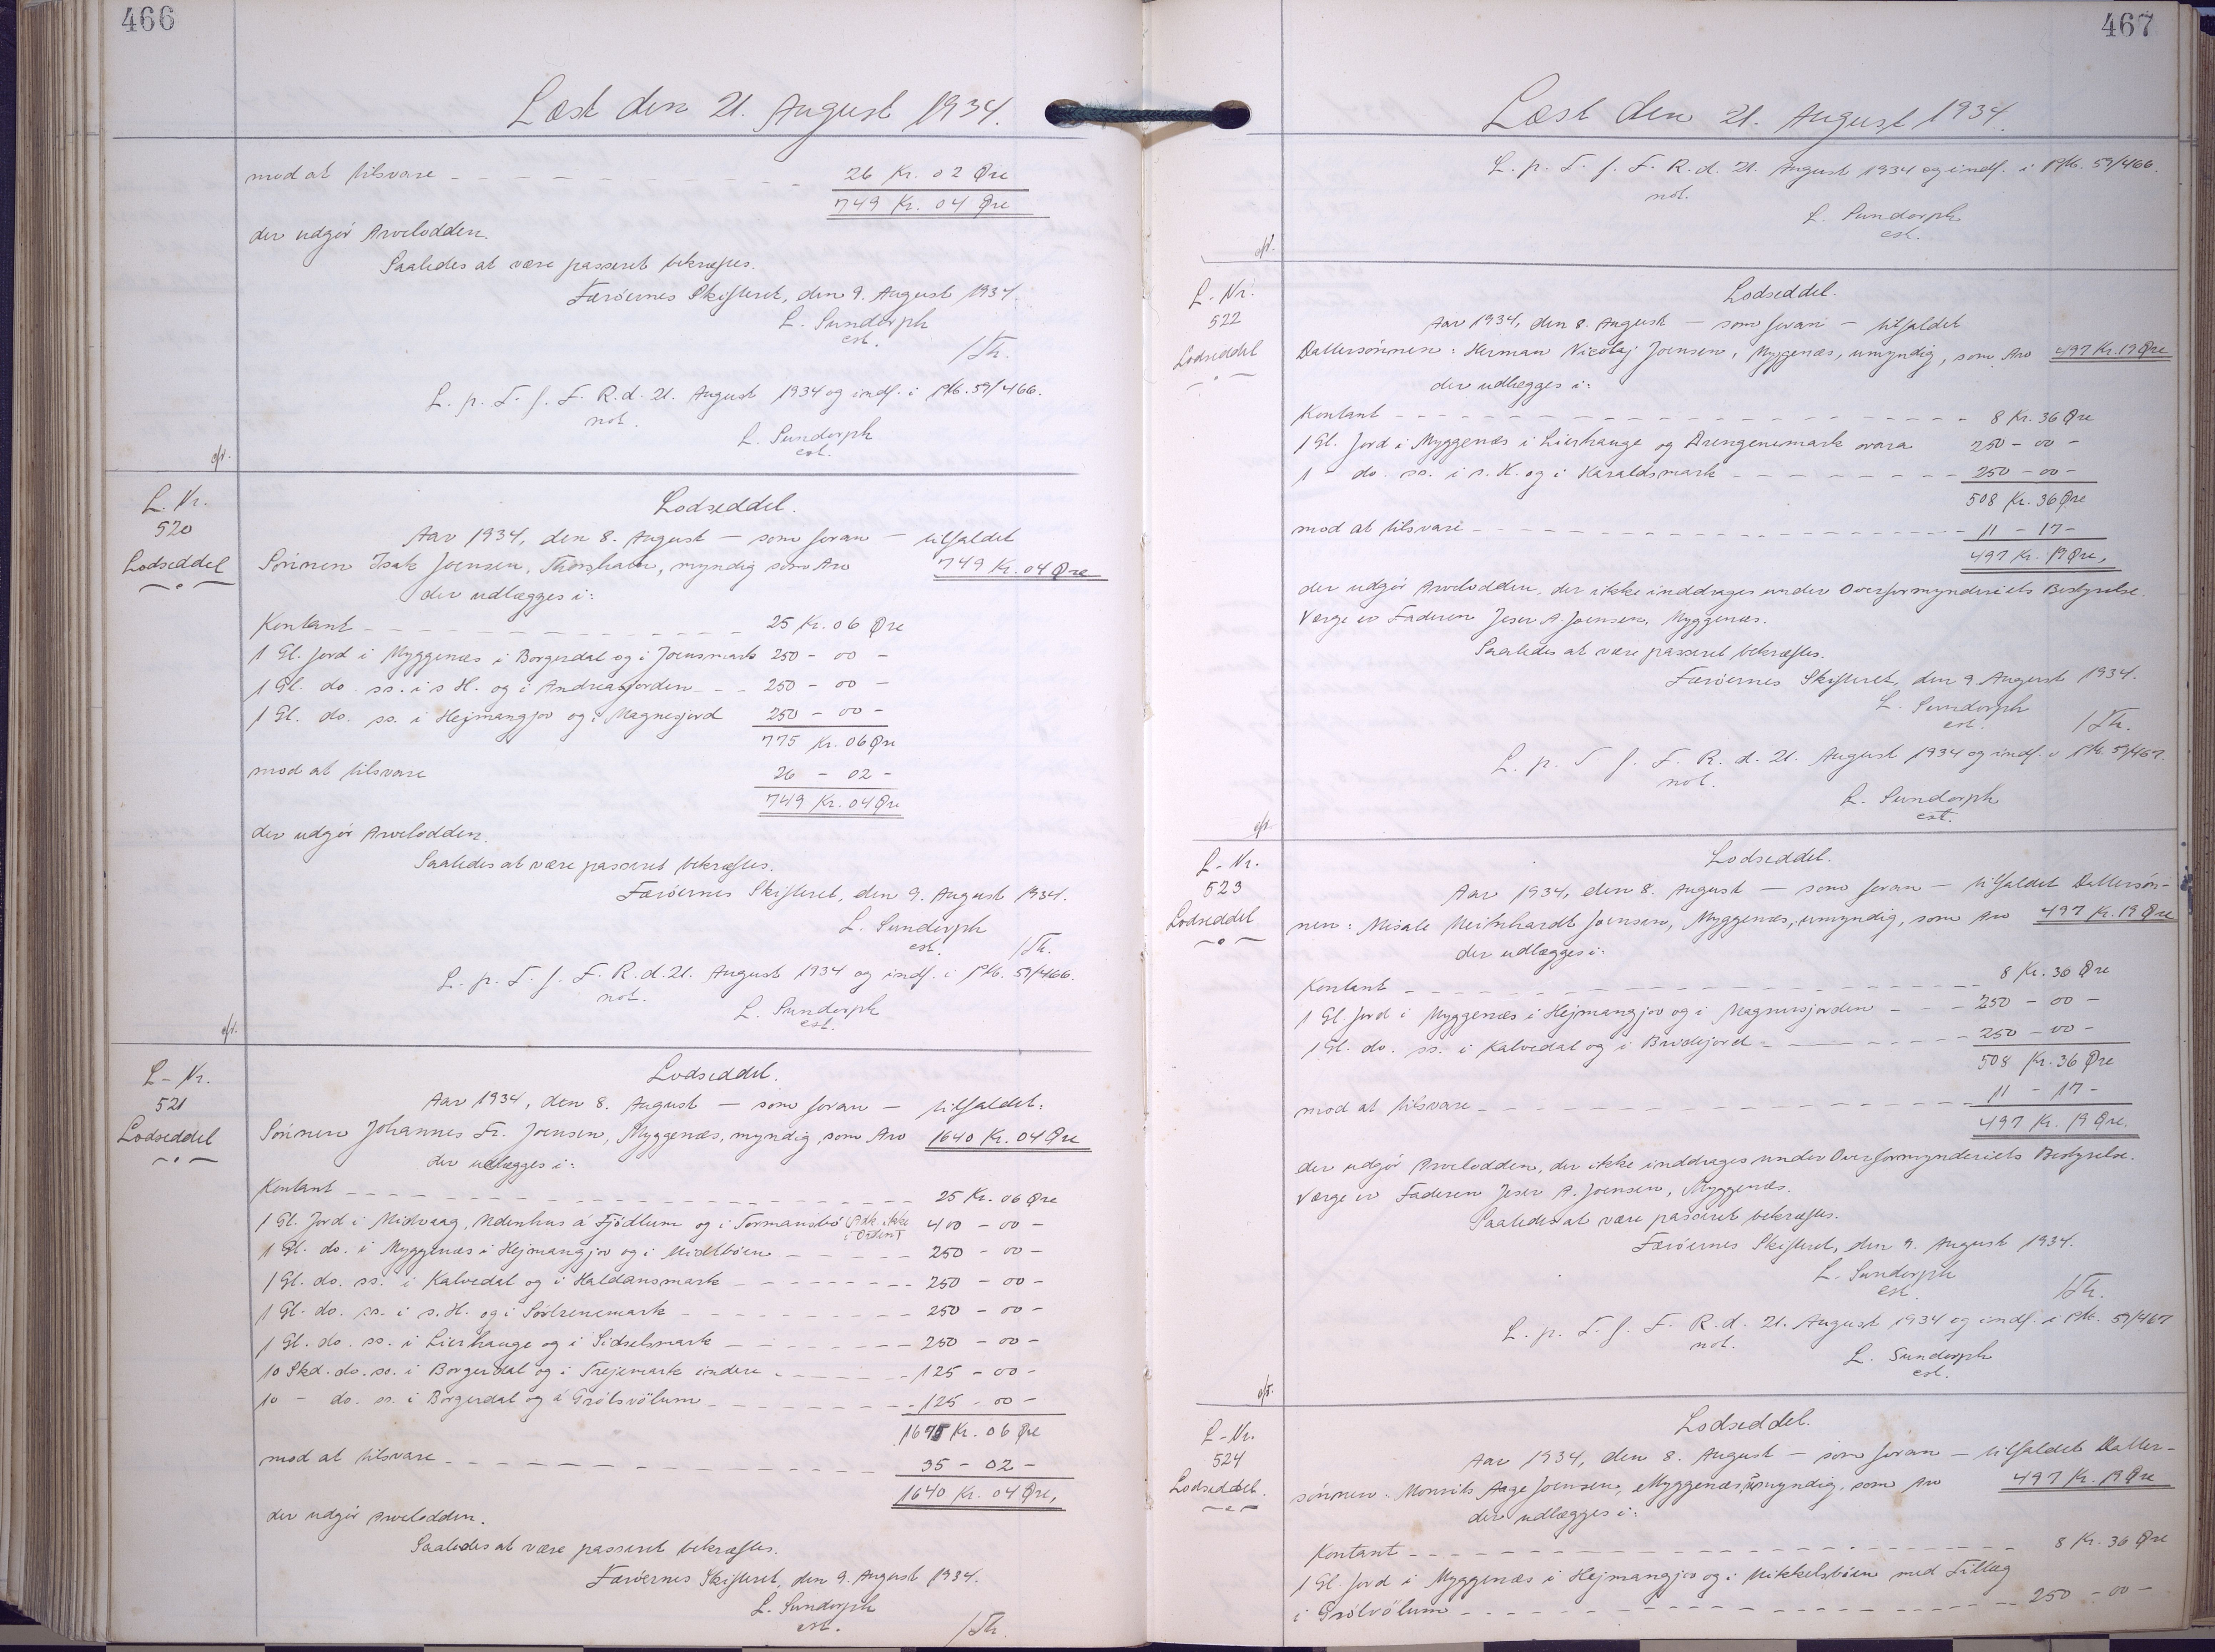 466
Læst den 21. August 1934.
mod at tilsvare 26 Kr. 02 Øre
749 Kr. 04 Øre
der udgör Arvelodden.
Saaledes at være passeret bekræftes.
Færöernes Skifteret, den 9. August 1934.
L. Sundorph
cst.
/Th.
L. p. T. f. F. R. d. 21. August 1934 og indf. i Ptb. 59/466.
not.
L. Sundorph
cst.
L. Nr.
520
Lodseddel
Lodseddel.
Aar 1934, den 8. August — som foran — tilfaldet
Sönnen Isak Joensen, Thorshavn, myndig som Arv 749 Kr. 04 Øre
der udlægges i:
Kontant 25 Kr. 06 Øre
1 Gl. Jord i Myggenæs i Borgerdal og i Joensmark 250 - 00 -
1 Gl. do. ss. i s. H. og i Andreasjorden 250 - 00 -
1 Gl. do. ss. i Hejmangjov og i Magnesjord 250 - 00 -
775 Kr. 06 Øre
mod at tilsvare 26 - 02 -
749 Kr. 04 Øre
der udgör Arvelodden.
Saaledes at være passeret bekræftes.
Færöernes Skifteret, den 9. August 1934.
L. Sundorph
cst.
/Th.
L. p. T. f. F. R. d. 21. August 1934 og indf. i Ptb. 59/466.
not.
L. Sundorph
cst.
L - Nr.
521
Lodseddel
Lodseddel.
Aar 1934, den 8. August — som foran — tilfaldet:
Sönnen Johannes Fr. Joensen, Myggenæs, myndig, som Arv 1640 Kr. 04 Øre
der udlægges i:
Kontant 25 Kr. 06 Øre
1 Gl. Jord i Midvaag, Udenhus á Fjödlum og i Tormansbö (Adk. ikke i Orden) 400 - 00 -
1 Gl. do. i Myggenæs i Hejmangjov og i Midlböen 250 - 00 -
1 Gl. do. ss. i Kalvedal og i Haldansmark 250 - 00 -
1 Gl. do. ss. i s. H. og i 250 - 00 -
1 Gl. do. ss. i Lierhauge og i Sidselsmark 250 - 00 -
10 Skd. do. ss. i Borgerdal og i Trejemark indere 125 - 00 -
10 - do. ss. i Borgerdal og á Grólsvölum 125 - 00 -
1675 Kr. 06 Øre
mod at tilsvare 35 - 02 -
1640 Kr. 04 Øre,
der udgör Arvelodden.
Saaledes at være passeret bekræftes.
Færöernes Skifteret, den 9. August 1934.
L. Sundorph
cst.
/Th.
467
Læst den 21. August 1934.
L. p. T. f. F. R. d. 21. August 1934 og indf. i Ptb. 59/466.
not.
L. Sundorph
cst.
L - Nr.
522
Lodseddel
Lodseddel.
Aar 1934, den 8. August — som foran — tilfaldet
Dattersönnen: Herman Nicolaj Joensen, Myggenæs, umyndig, som Arv 497 Kr. 19 Øre
der udlægges i:
Kontant 8 Kr. 36 Øre
1 Gl. Jord i Myggenæs i Lierhauge og Drengenemark ovara 250 - 00 -
1 - do. ss. i s. H. og i Karaldsmark 250 - 00 -
508 Kr. 36 Øre
mod at tilsvare 11 - 17 -
497 Kr. 19 Øre,
der udgör Arvelodden, der ikke inddrages under Overformynderiets Bestyrelse.
Værge er Faderen Jeser A. Joensen, Myggenæs.
Saaledes at være passeret bekræftes.
Færöernes Skifteret, den 9. August 1934.
L. Sundorph
cst.
/Th.
L. p. T. f. F. R. d. 21. August 1934 og indf. i Ptb. 59/467.
not.
L. Sundorph
cst.
L - Nr.
523
Lodseddel
Lodseddel.
Aar 1934, den 8. August — som foran — tilfaldet Dattersön-
nen: Misale Meitnhardt Joensen, Myggenæs, umyndig, som Arv 497 Kr. 19 Øre
der udlægges i:
Kontant 8 Kr. 36 Øre
1 Gl. Jord i Myggenæs i Hejmangjov og i Magnusjorden 250 - 00 -
1 Gl. do. ss. i Kalvedal og i 250 - 00 -
508 Kr. 36 Øre
mod at tilsvare 11 - 17 -
497 Kr. 19 Øre.
der udgör Arvelodden, der ikke inddrages under Overformynderiets Bestyrelse.
Værge er Faderen Jeser A. Joensen, Myggenæs.
Saaledes at være passeret bekræftes.
Færöernes Skifteret, den 9. August 1934.
L. Sundorph
cst.
/Th.
L. p. T. f. F. R. d. 21. August 1934 og indf. i Ptb. 59/467
not.
L. Sundorph
cst.
L - Nr.
524
Lodseddel.
Lodseddel.
Aar 1934, den 8. August — som foran — tilfaldet Datter-
sönnen: Mourits Aage Joensen, Myggenæs, umyndig, som Arv 497 Kr. 19 Øre
der udlægges i:
Kontant 8 Kr. 36 Øre
1 Gl. Jord i Myggenæs i Hejmangjov og i Mikkelsböen med Tillæg
i Grólvölum 250 - 00 -